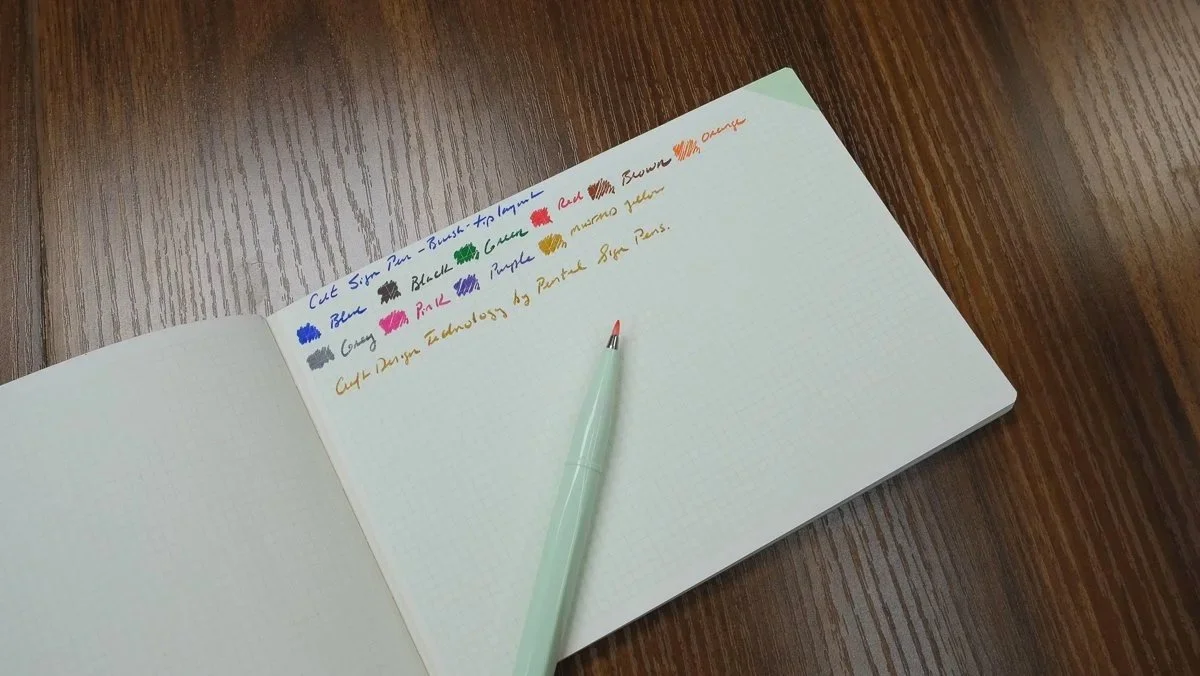 Cult Sign Pen - Brush-tip layout
Blue Black Green Red Brown Orange
Grey Pink Purple Mustard yellow
Cult Design Technology by Pentel Sign Pens.